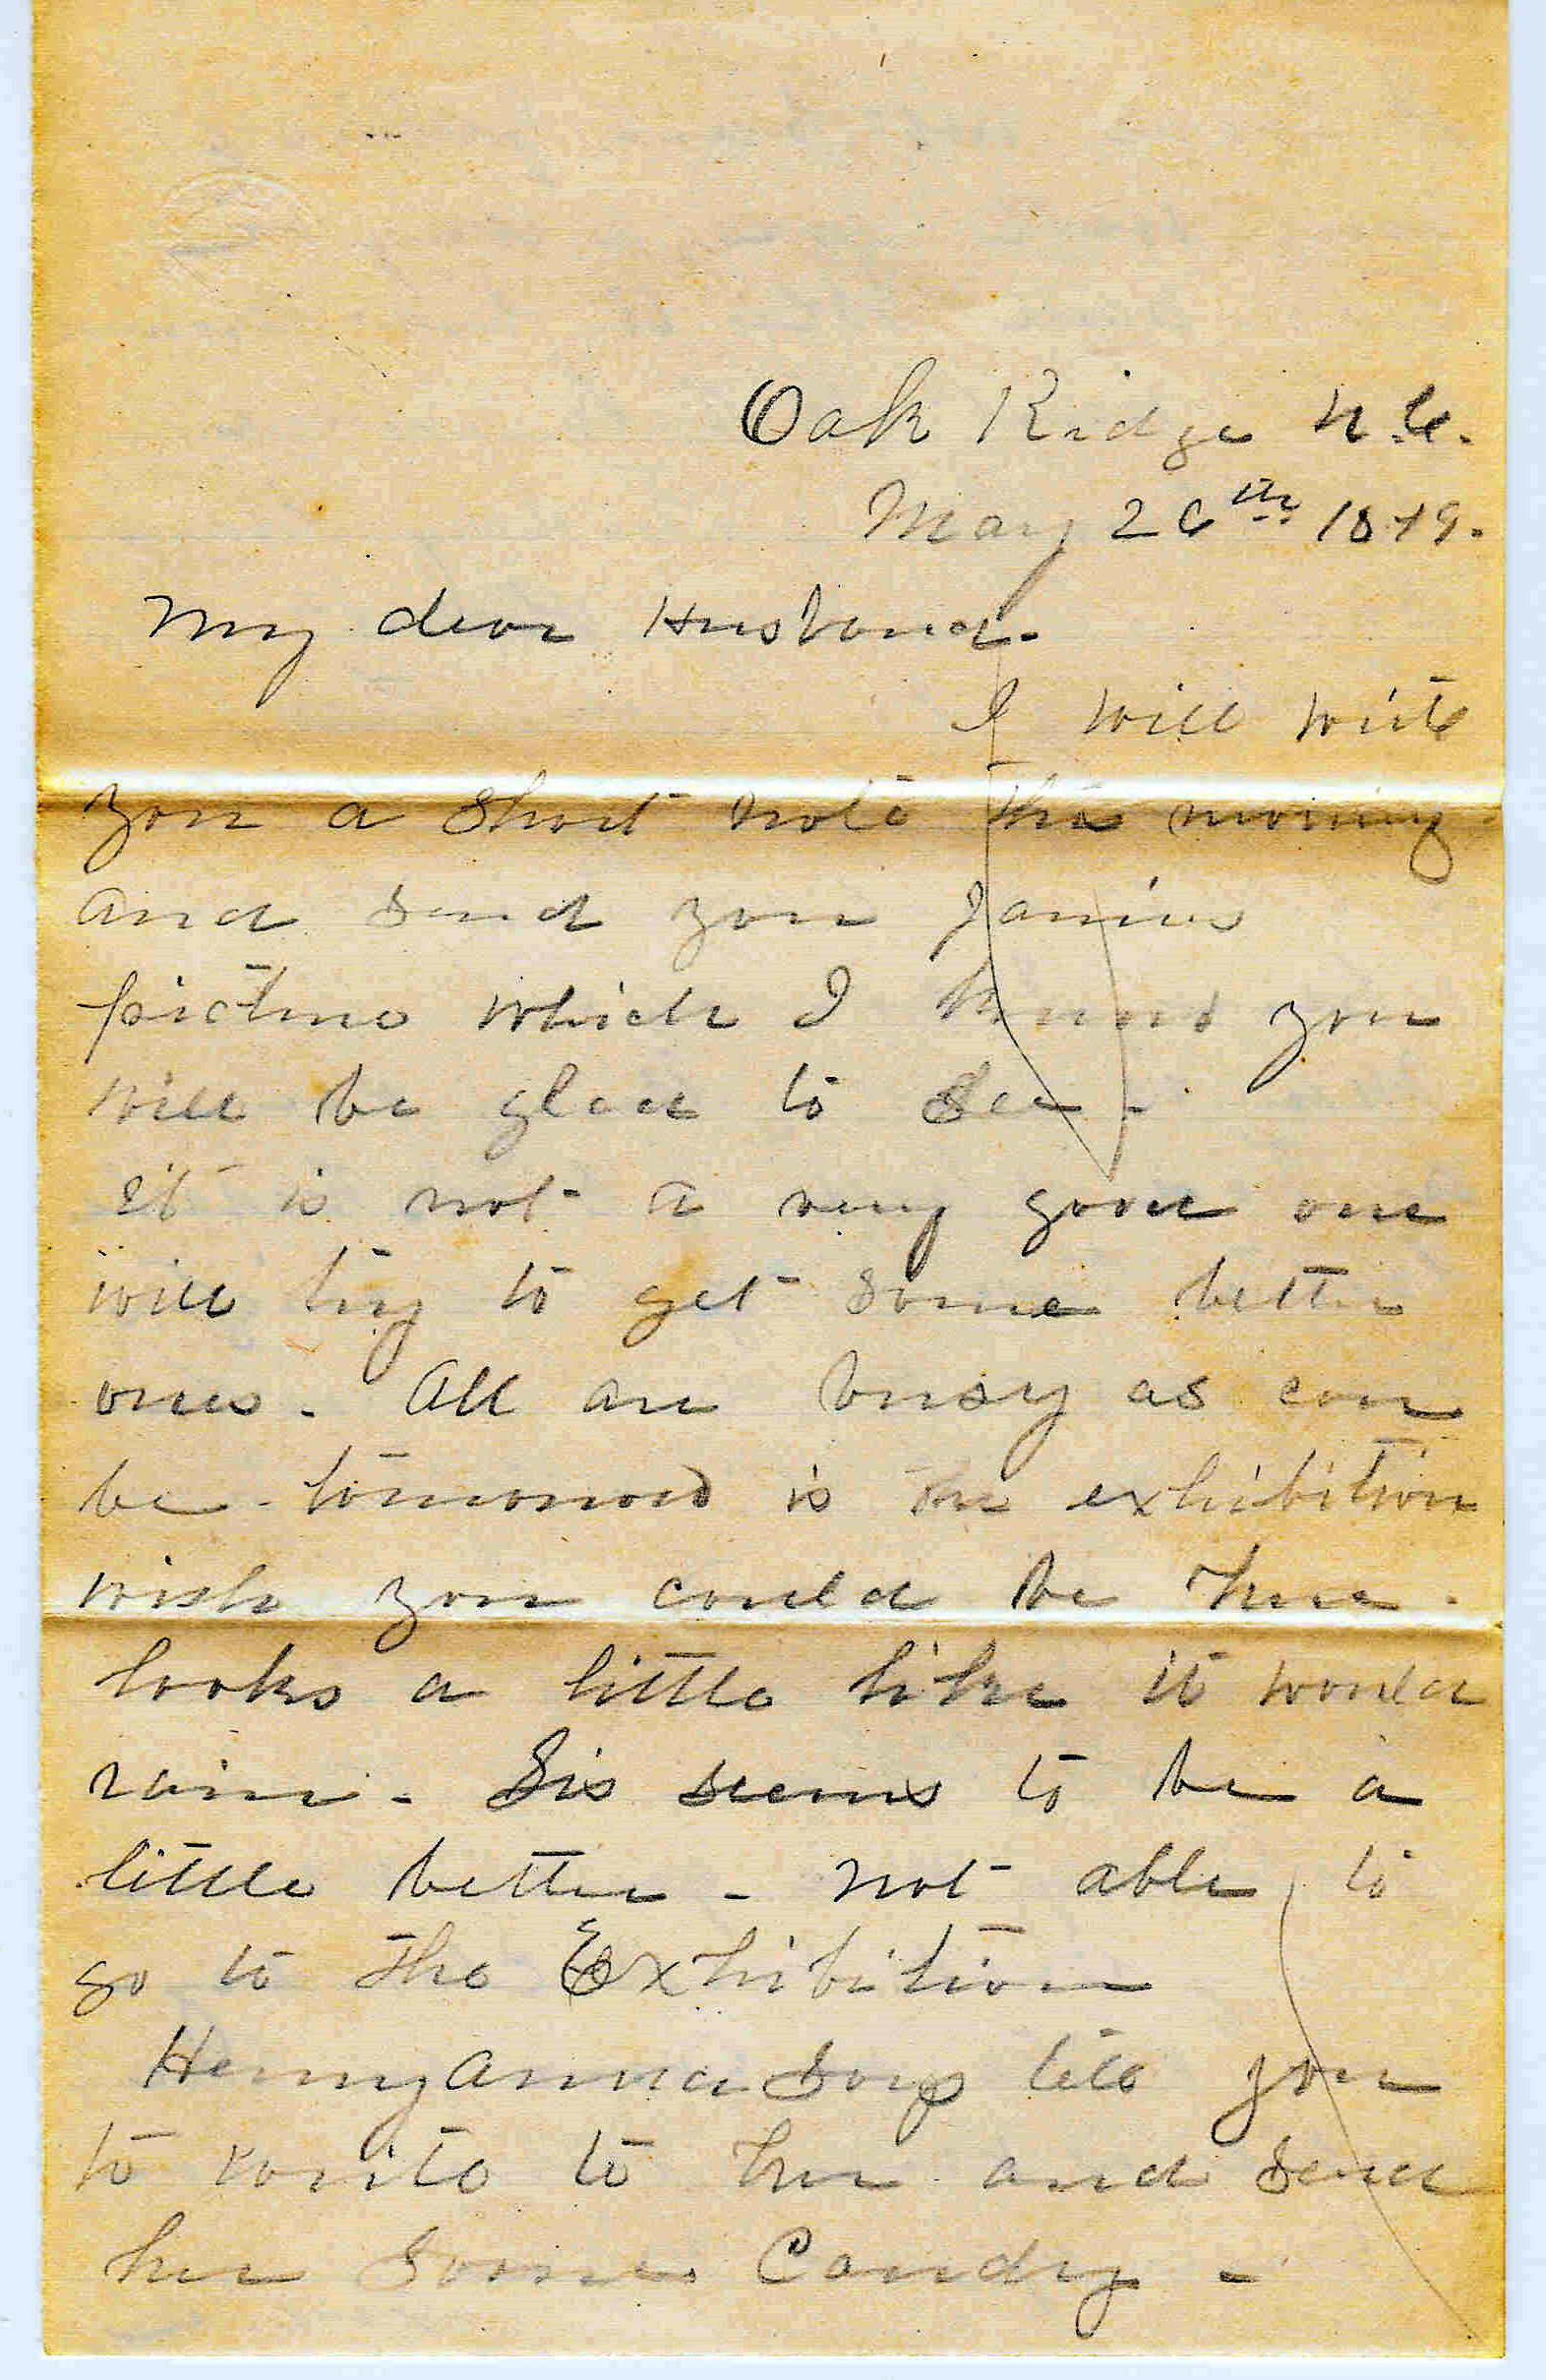 Oak Ridge N.C.
May 26th 1879.
My dear Husband.
I will write
you a short note this morning
and send you
picture which I know you
will be glad to see -
it is not a very good one
will try to get some better
ones - All are busy as can
be - tomorrow is the exhibition
wish you could be here -
looks a little like it would
rain - Sis seems to be a
little better - not able to
go to the Exhibition
Henryanna says tell you
to write to her and send
her some Candy -